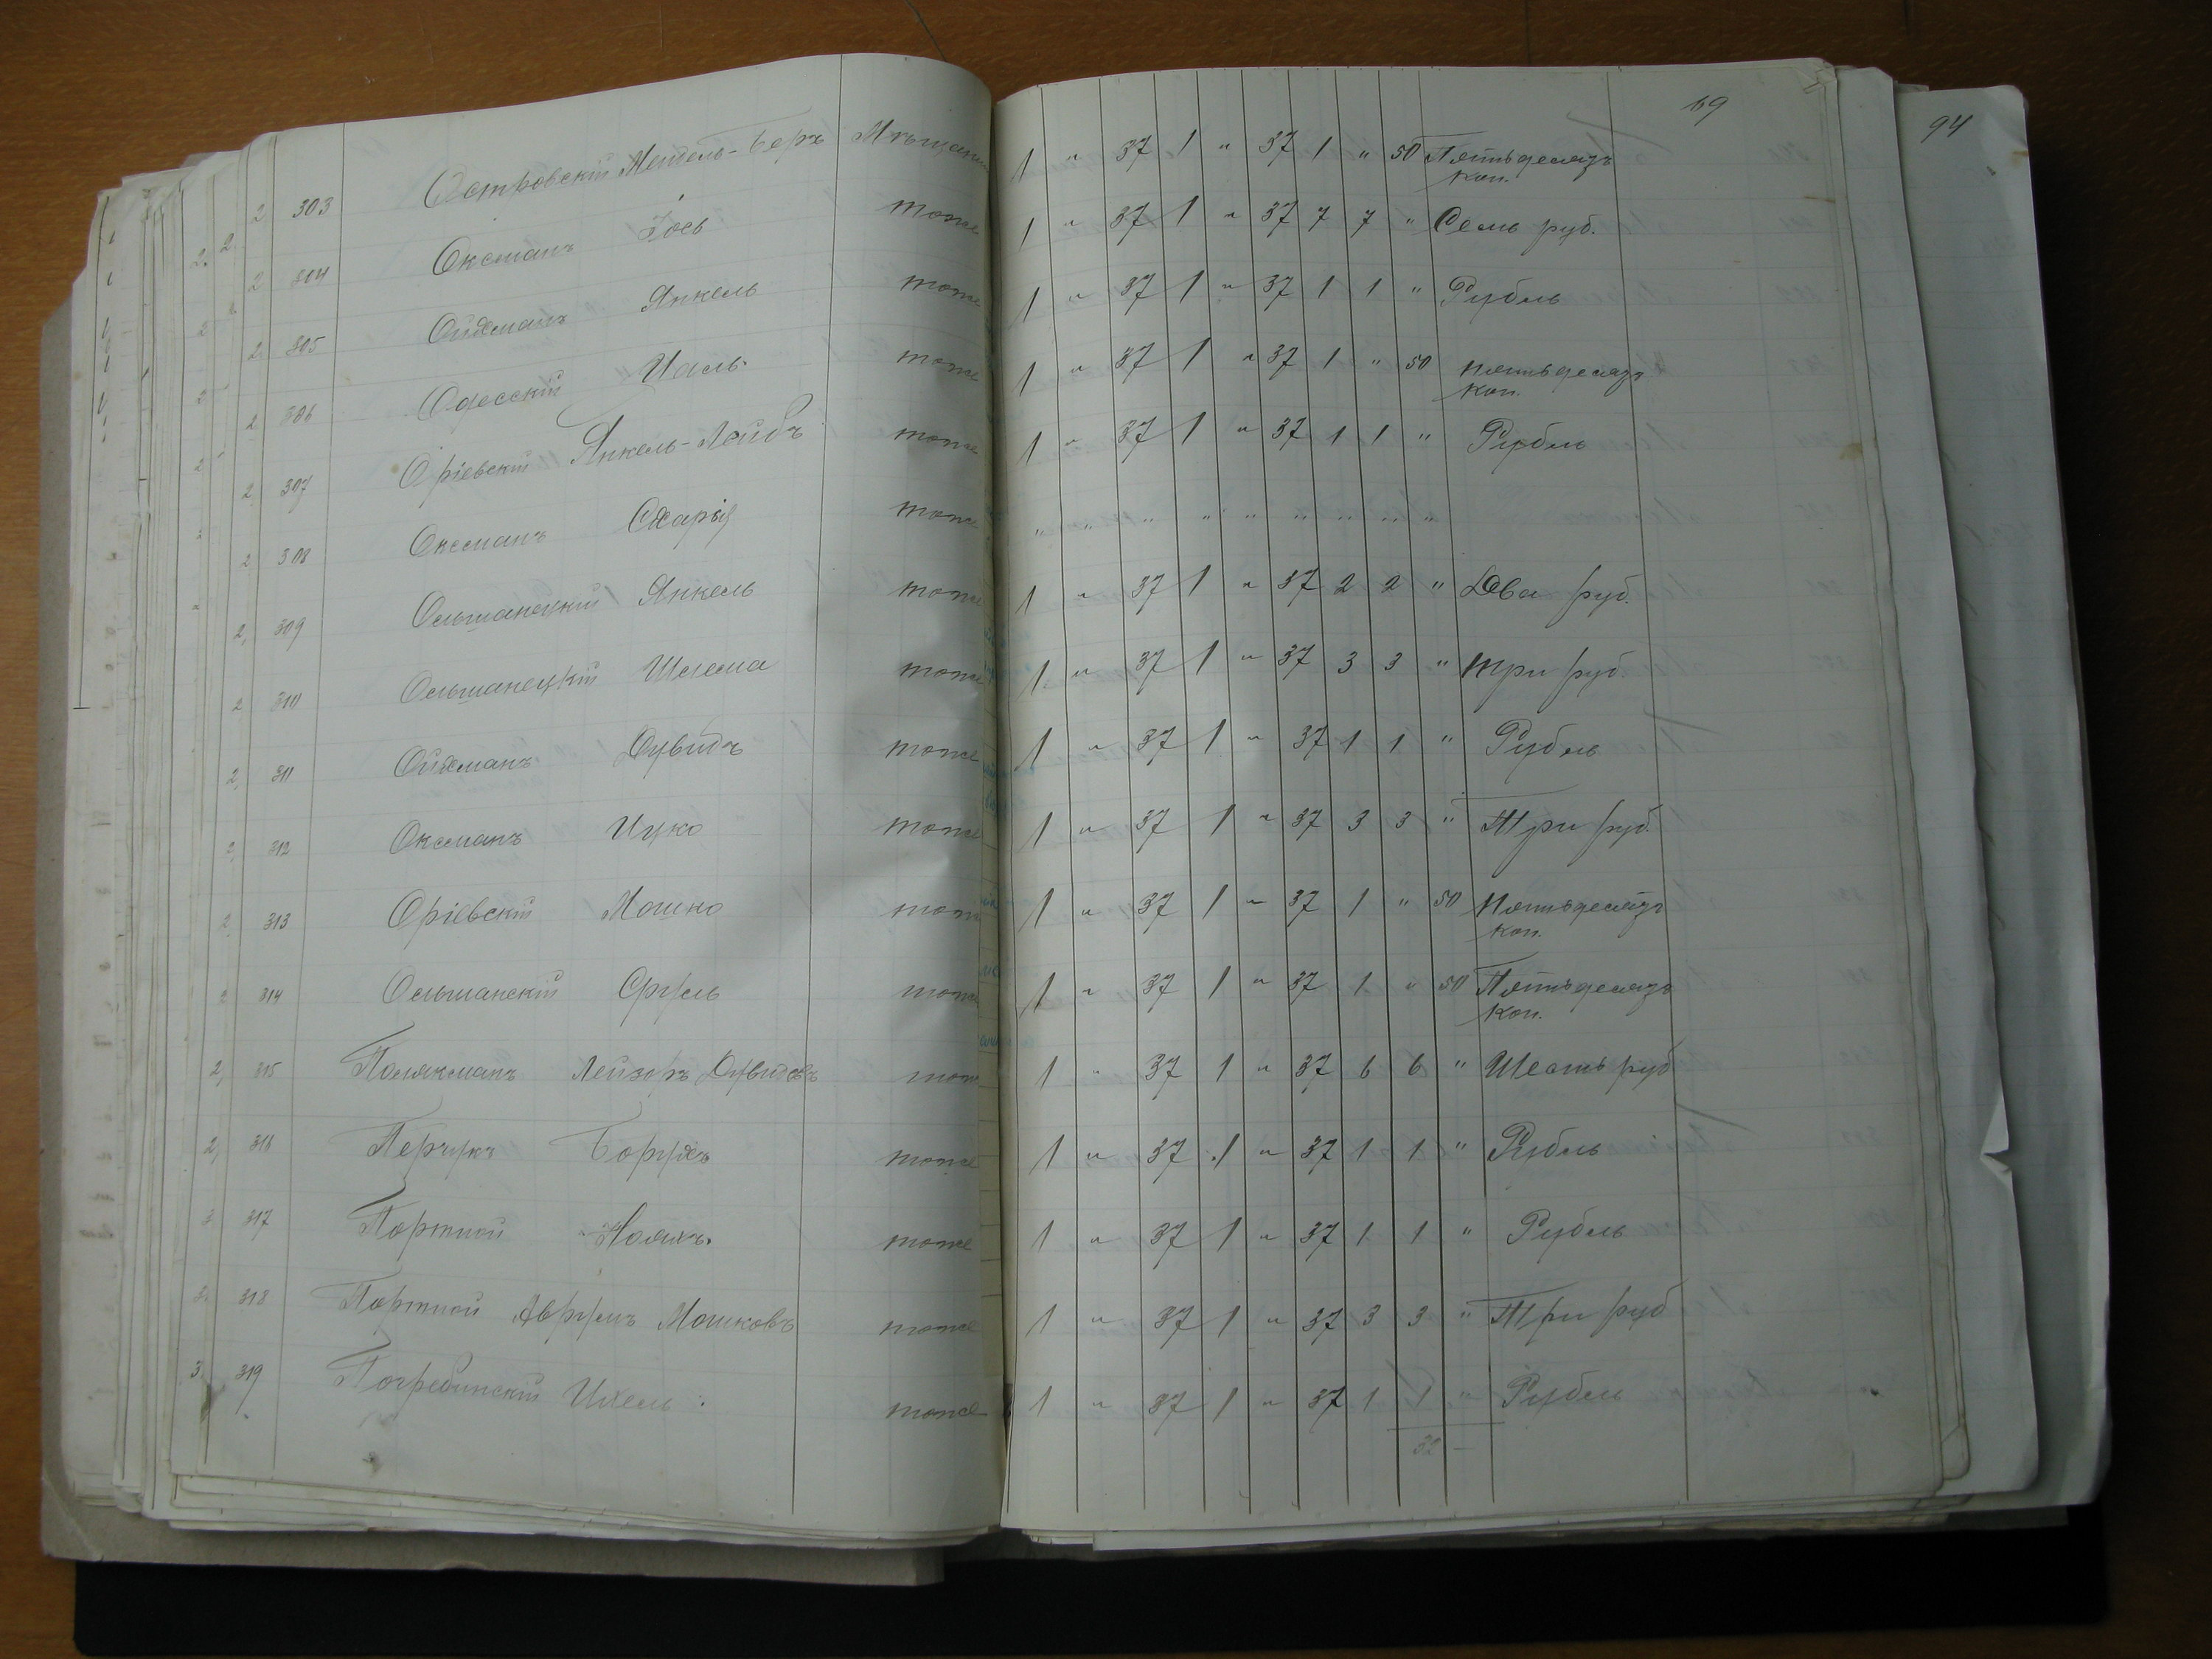 69
94
2 303 Островскій Мендель-Беръ Мѣщанин 1 " 37 1 " 37 1 " 50 Пятьдесятъ
коп.
2 304 Оксманъ Іось тоже 1 " 37 1 " 37 7 7 " Семь руб.
2 305 Ойхманъ Янкель тоже 1 " 37 1 " 37 1 1 " Рубль
2 306 Одесскій тоже 1 " 37 1 " 37 1 " 50 Пятьдесятъ
коп.
2 307 Оріевскій Янкель-Лейбъ тоже 1 " 37 1 " 37 1 1 " Рубль
2 308 Оксманъ Схарія тоже " " " " " " " " "
2, 309 Ольшанецкій Янкель тоже 1 " 37 1 " 37 2 2 " Два руб.
2 310 Ольшанецкій Шлема тоже 1 " 37 1 " 37 3 3 " три руб.
2, 311 Ойхманъ Дувидъ тоже 1 " 37 1 " 37 1 1 " Рубль
2, 312 Оксманъ Ицко тоже 1 " 37 1 " 37 3 3 " Три руб.
2 313 Оріевскій Мошко тоже 1 " 37 1 " 37 1 " 50 Пятьдесятъ
коп.
2 314 Ольшанскій Сруль тоже 1 " 37 1 " 37 1 " 50 Пятьдесятъ
коп.
2, 315 Полякманъ Лейзоръ Дувидовъ тоже 1 " 37 1 " 37 6 6 " Шесть руб
2, 316 Перчукъ Борухъ тоже 1 " 37 1 " 37 1 1 " Рубль
3 317 Портной тоже 1 " 37 1 " 37 1 1 " Рубль
3 318 Портной Аврумъ Мошковъ тоже 1 " 37 1 " 37 3 3 " Три руб
3 319 Погребинскій Ихель тоже 1 " 37 1 " 37 1 1 " Рубль
32 —